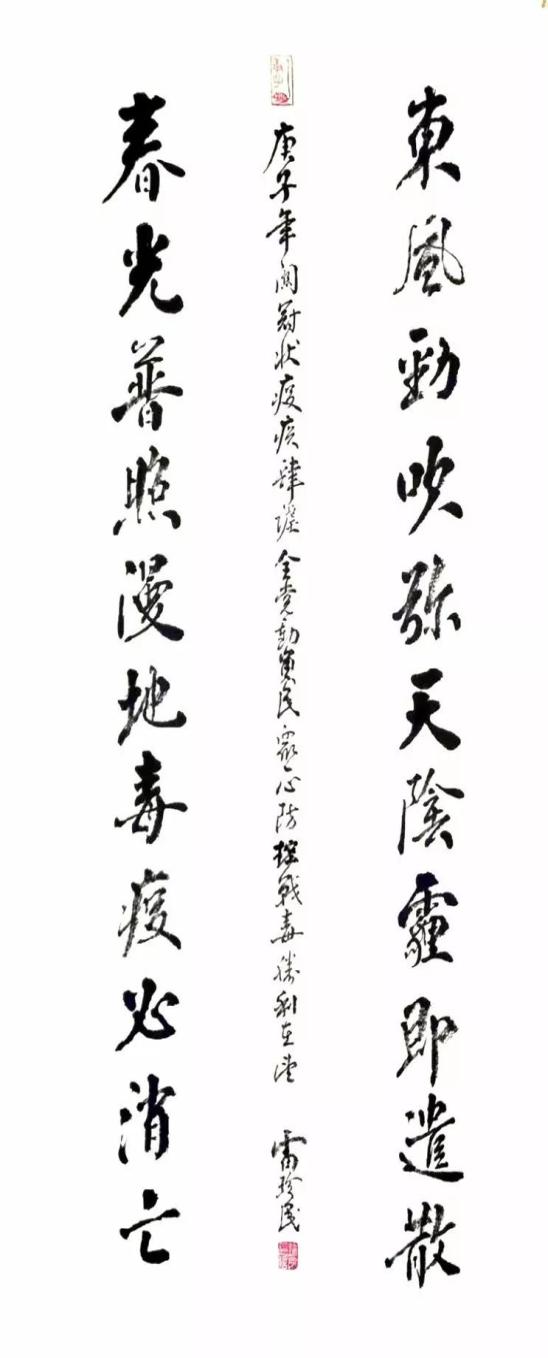 東風勁吹弥天陰霾即遣散
庚子年関冠状疫疾肆瀅全党動員民衆一心防控戰毒勝利在望
雷珍民
春光普照漫地毒疫必消亡